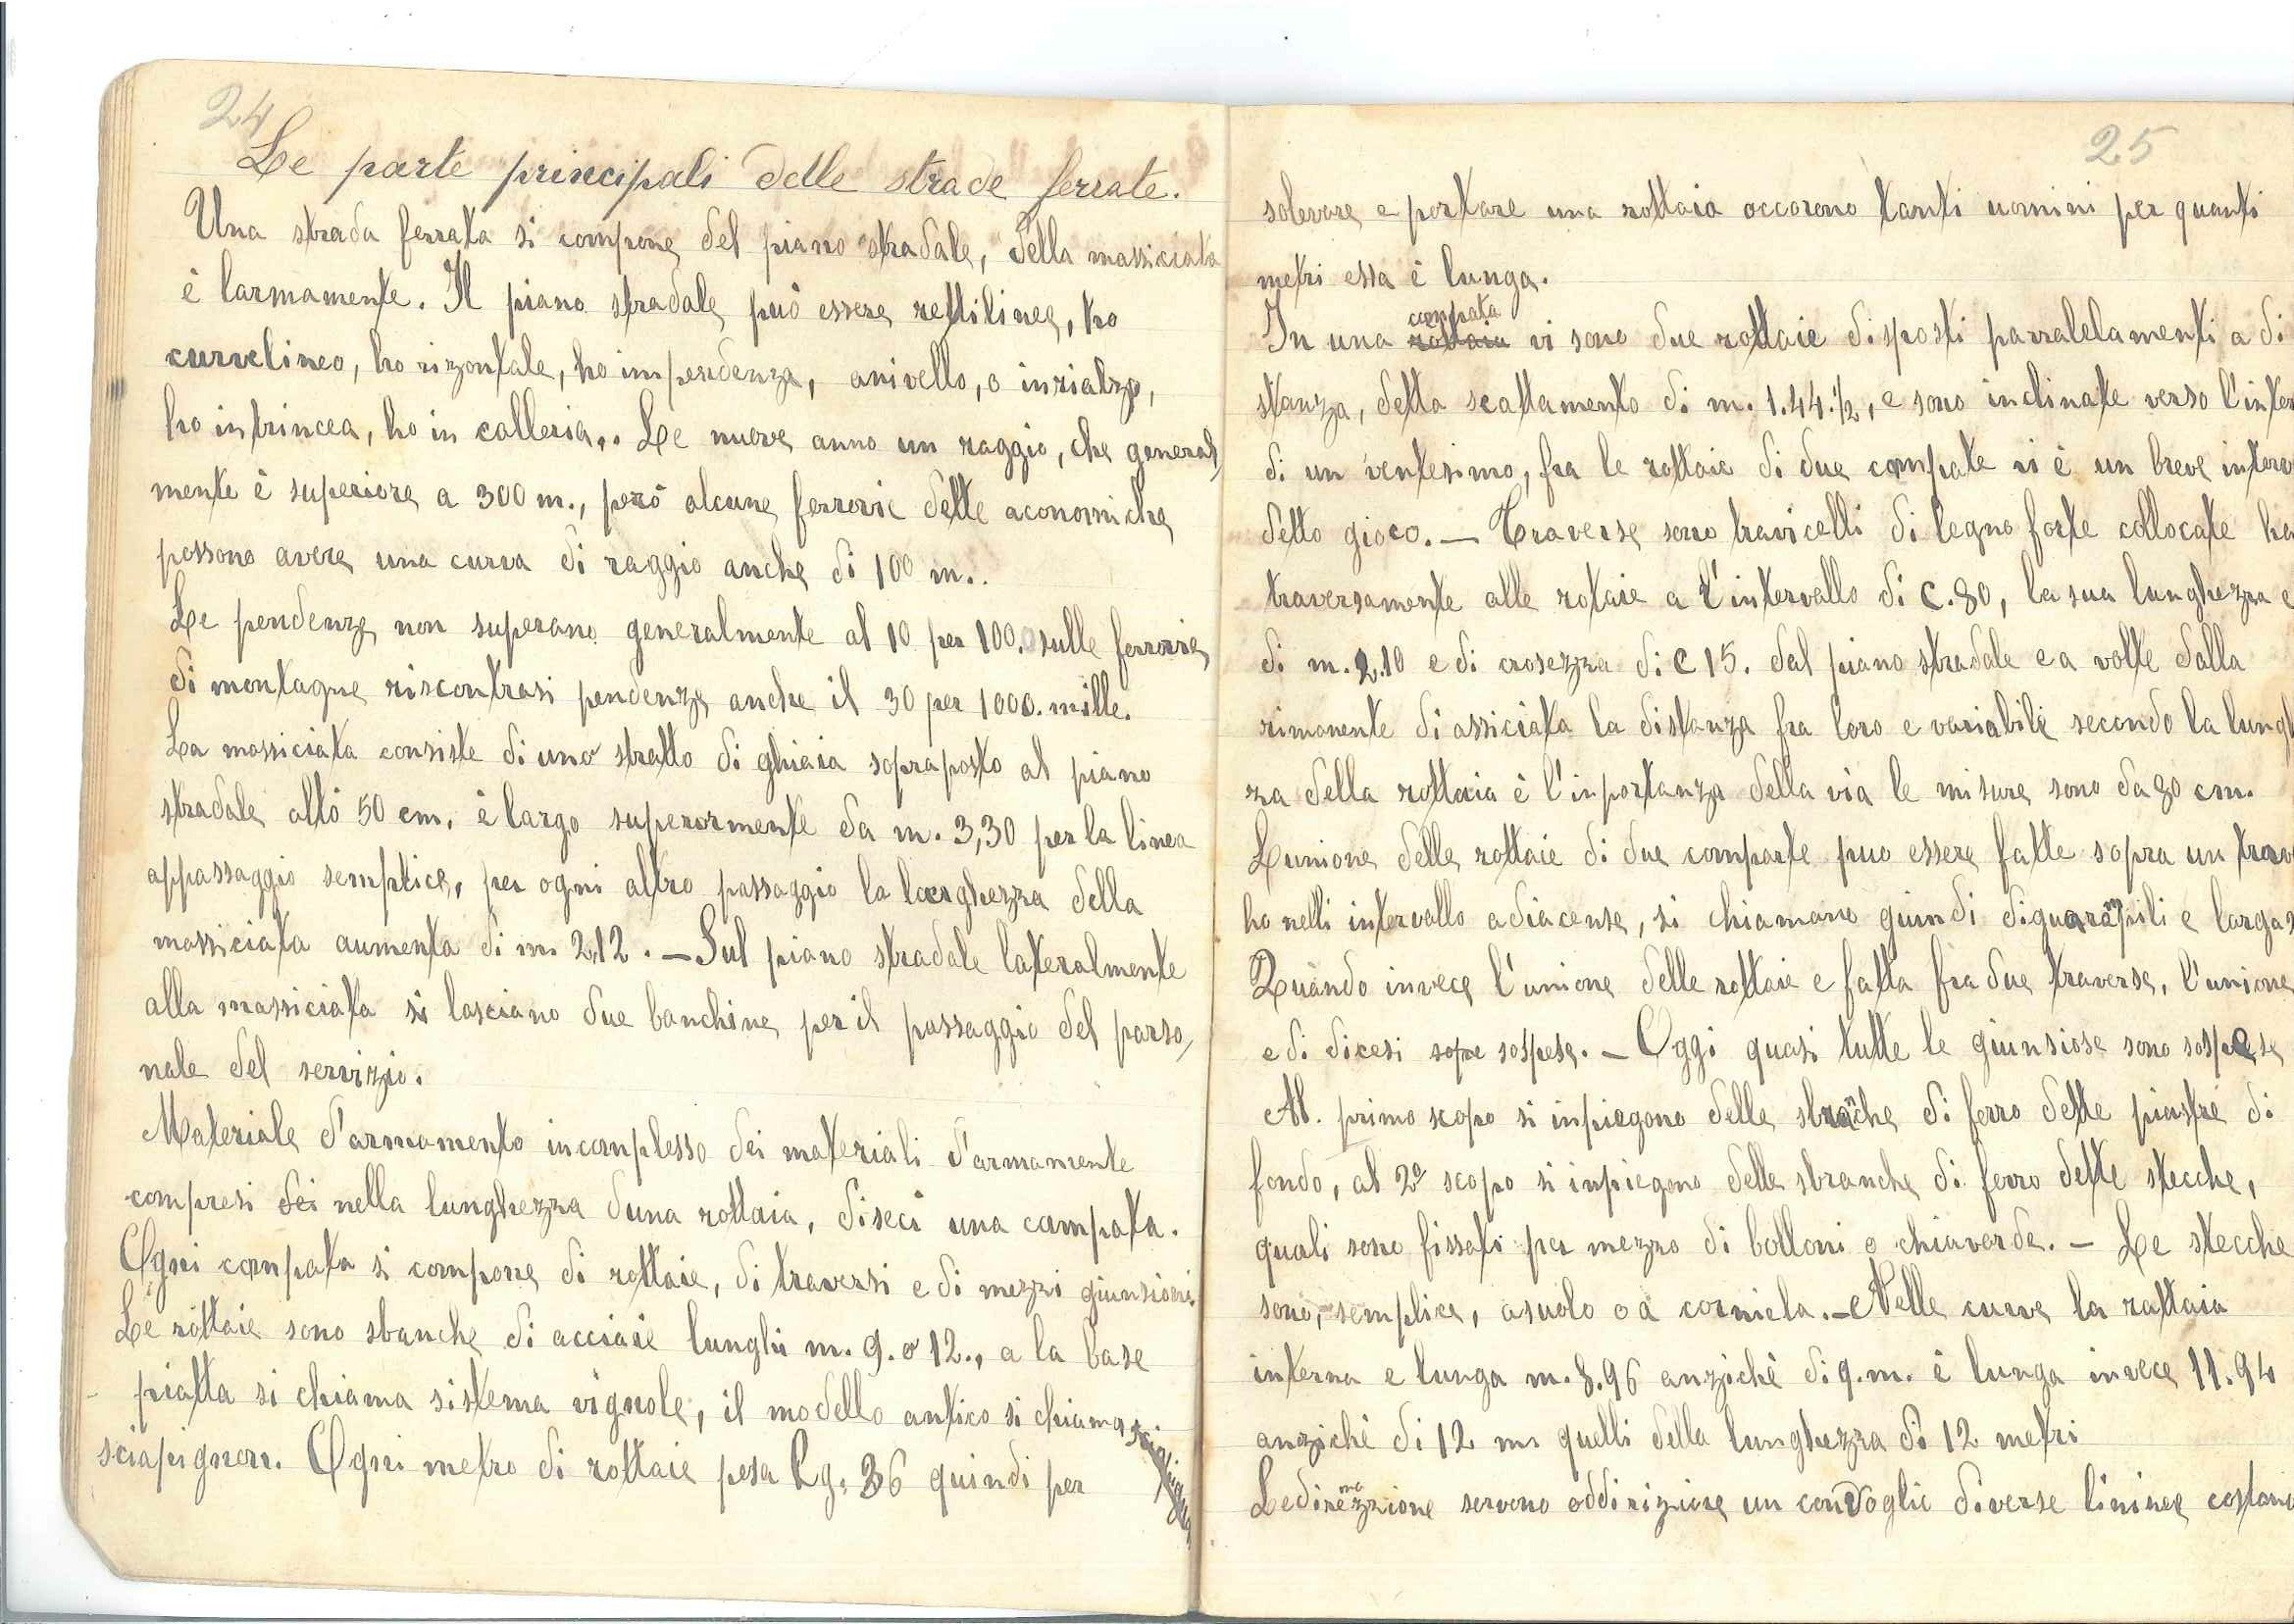 24
Le parte principali delle strade ferrate.
Una strada ferrata si compone del piano stradale, della massiciata
è larmamente. Il piano stradale può essere rettilinee, ho
curvelineo, ho rizontale, ho impendenza, anivello, o inrialzo,
ho intrincea, ho in calleria,. Le nuove anno un raggio, che general,
mente è superiore a 300 m., però alcune ferrovie dette aconomiche
possono avere una curva di raggio anche di 100 m..
Le pendenze non superano generalmente al 10 per 100. sulle ferrovie
di montagne riscontrasi pendenze anche il 30 per 1000. mille.
La massiciata consiste di uno stratto di ghiaia sopraposto al piano
stradale altò 50 cm. è largo superormente da m. 3,30 per la linea
appassaggio semplice, per ogni altro passaggio la larghezza della
massiciata aumenta di m. 2,12. — Sul piano stradale lateralmente
alla massiciata si lasciano due banchine per il passaggio del parso,
nale del servizio.
Materiale d'armamento incomplesso dei materiali d'armamente
compresi dei nella lunghezza duna rottaia, diseci una campata.
Ogni campata si compone di rottaie, di traversi e di mezzi giunsioni
Le rottaie sono sbanche di acciaie lunghi m. 9. o 12., a la base
piatta si chiama sistema vignole, il modello antico si chiama
sciapignon. Ogni metro di rottaie pesa Kg. 36 quindi per
25
solevare e portare una rottaia occorono tanti uomini per quanti
metri essa è lunga.
campata
In una rottaia vi sono due rottaie disposti parralelamenti a di
stanza, detta scattamento di m. 1.44.½, e sono inclinate verso l'inter
di un ventesimo, fra le rottaie di due campate vi è un breve interv
detto gioco. — Traverse sono travicelli di legno forte collocate ha
traversamente alle rotaie a l'intervallo di c. 80, la sua lunghezza e
di m. 2.10 e di crosezza di c 15. dal piano stradale e a volte dalla
rimanente di assiciata la distanza fra loro e variabile secondo la lungh
za della rottaia è l'inportanza della via le misure sono da 80 cm.
Lunione delle rottaie di due comparte puo essere fatte sopra un trav
ho nelli intervallo adiacense, si chiamano quindi e larga
Quando invece l'unione delle rottaie e fatta fra due traverse, l'unione
e di dicesi sope sospese. — Oggi quasi tutte le giunsiose sono sospese
Al. primo scopo si inpiegono delle di ferro dette piastre di
fondo, al 2º scopo si inpiegono delle sbranche di ferro dette stecche,
quali sono fissati per mezzo di bolloni o chiaverde. — Le stecche
sono, semplice, asuolo o a corniela. — Nelle curve la rattaia
interna e lunga m. 8.96 anzichè di 9. m. è lunga invece 11.94
anzichè di 12 m. quelli della lunghezza di 12 metri
servono addiriziare un convoglie diverse lininee costano